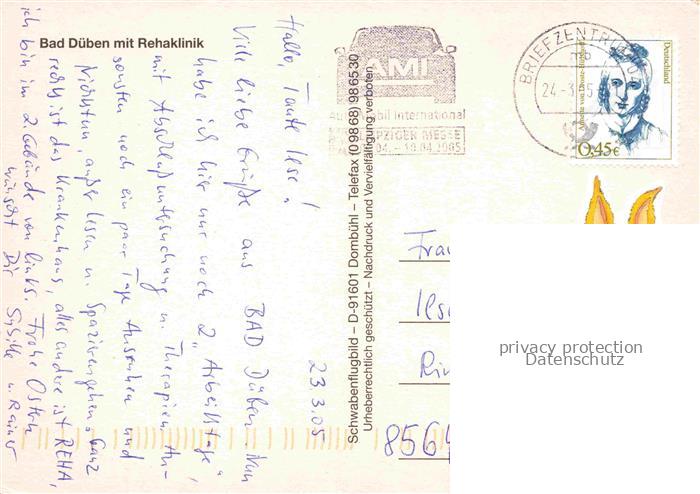 Bad Düben mit Rehaklinik
23.3.05
Hallo, Tante Ilse!
Viele liebe Grüße aus BAD Düben. Nun
habe ich hier nur noch 2 „Arbeitstage",
mit Abschlußuntersuchung u. Therapien. An-
sonsten noch ein paar Tage Ausruhen und
Nichtstun, außer lesen u. Spazierengehen. Ganz
rechts ist das Krankenhaus, alles andere ist REHA,
ich bin im 2. Gebäude von links. Frohe Ostern
wünscht Dir Sybille u. Rainer
Schwabenflugbild – D-91601 Dombühl – Telefax (0 98 68) 98 65 30
Urheberrechtlich geschützt – Nachdruck und Vervielfältigung verboten
AMI
Auto Mobil International
LEIPZIGER MESSE
04. – 10.04.2005
BRIEFZENTRUM
24.-3.05
Deutschland
Annette von Droste-Hülshoff
0,45€
Frau
Ilse
8564
privacy protection
Datenschutz